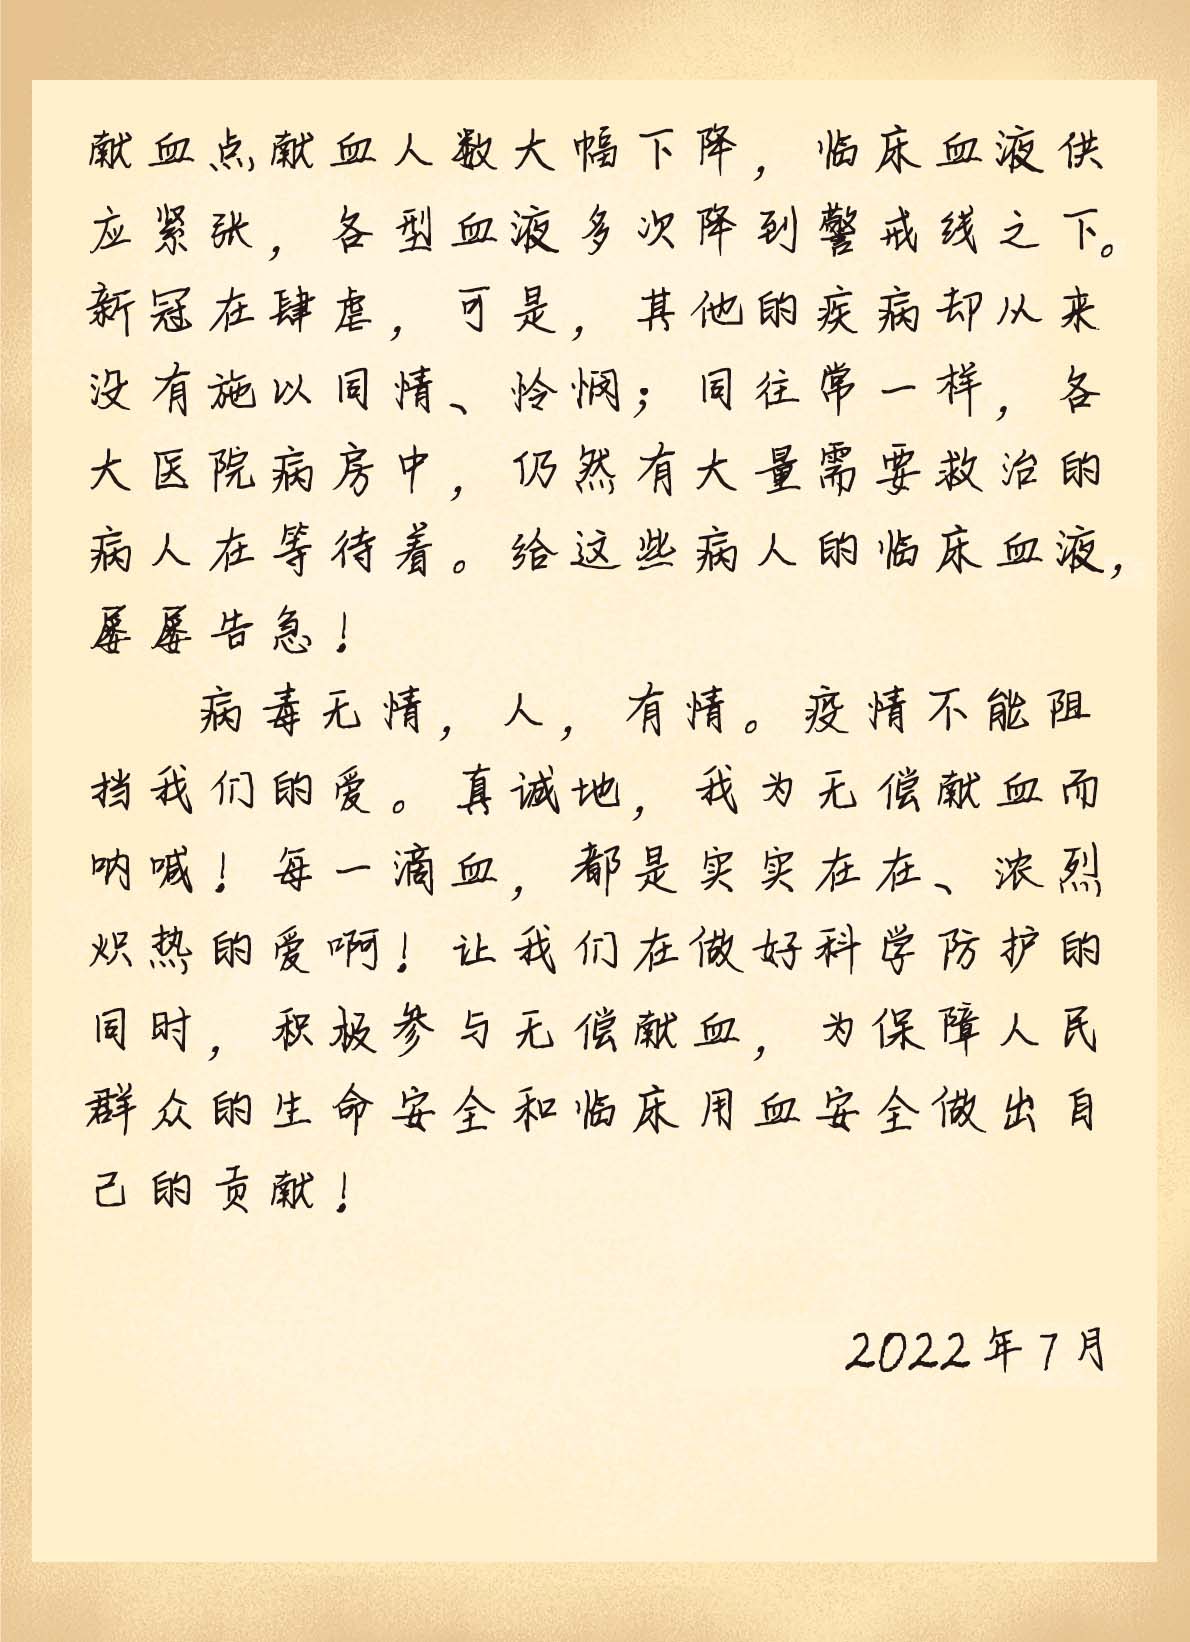 献血点献血人数大幅下降，临床血液供
应紧张，各型血液多次降到警戒线之下。
新冠在肆虐，可是，其他的疾病却从来
没有施以同情、怜悯；同往常一样，各
大医院病房中，仍然有大量需要救治的
病人在等待着。给这些病人的临床血液，
屡屡告急！
病毒无情，人，有情。疫情不能阻
挡我们的爱。真诚地，我为无偿献血而
呐喊！每一滴血，都是实实在在、浓烈
炽热的爱啊！让我们在做好科学防护的
同时，积极参与无偿献血，为保障人民
群众的生命安全和临床用血安全做出自
己的贡献！
2022年7月